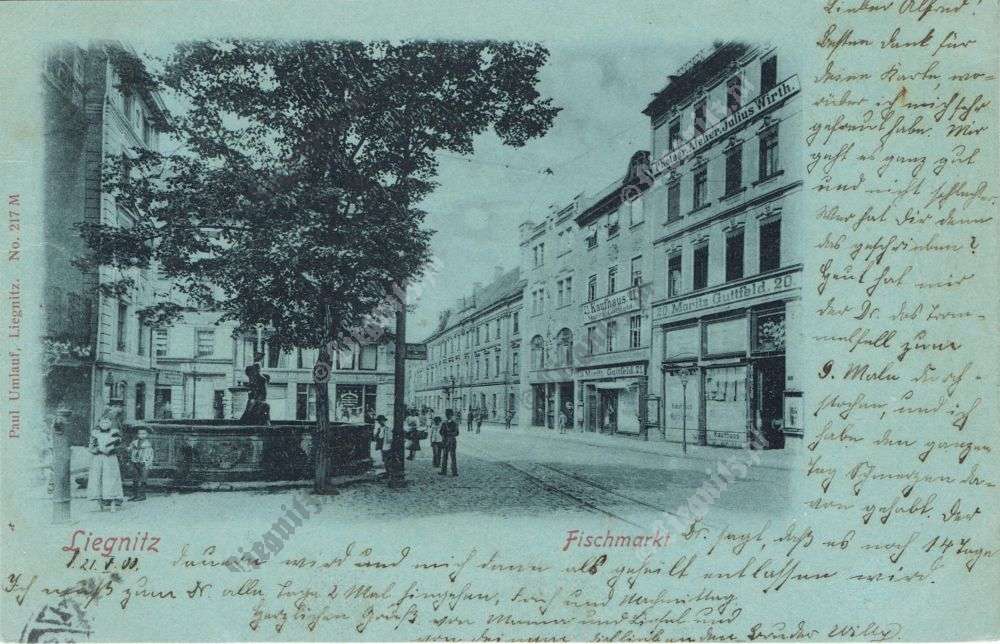 Lieber Alfred!
Besten Dank für
deine Karte, wo-
rüber ich mich sehr
gefreut habe. Mir
geht es ganz gut
und nicht schlecht.
Wer hat Dir denn
das geschrieben?
Heut hat mir
der Dr. das Trom-
melfell zum
9. Male durch-
stochen, und ich
habe den ganzen
Tag Schmerzen da-
von gehabt. Der
Dr. sagt, daß es noch 14 Tage
dauern wird und mich dann als geheilt entlassen wird.
Ich muß zum Dr. alle Tage 2 Mal hingehen, früh und Nachmittag
Herzlichen Gruß von Mama und Liesel und
von deinem Bruder Willy
Photogr. Atelier. Julius Wirth.
Kaufhaus
20 Moritz Guttfeld. 20
Moritz Guttfeld. 21
Kaufhaus
Paul Umlauf, Liegnitz. No. 217 M
Liegnitz
Fischmarkt
21. 5. 00.
liegnitz.pl